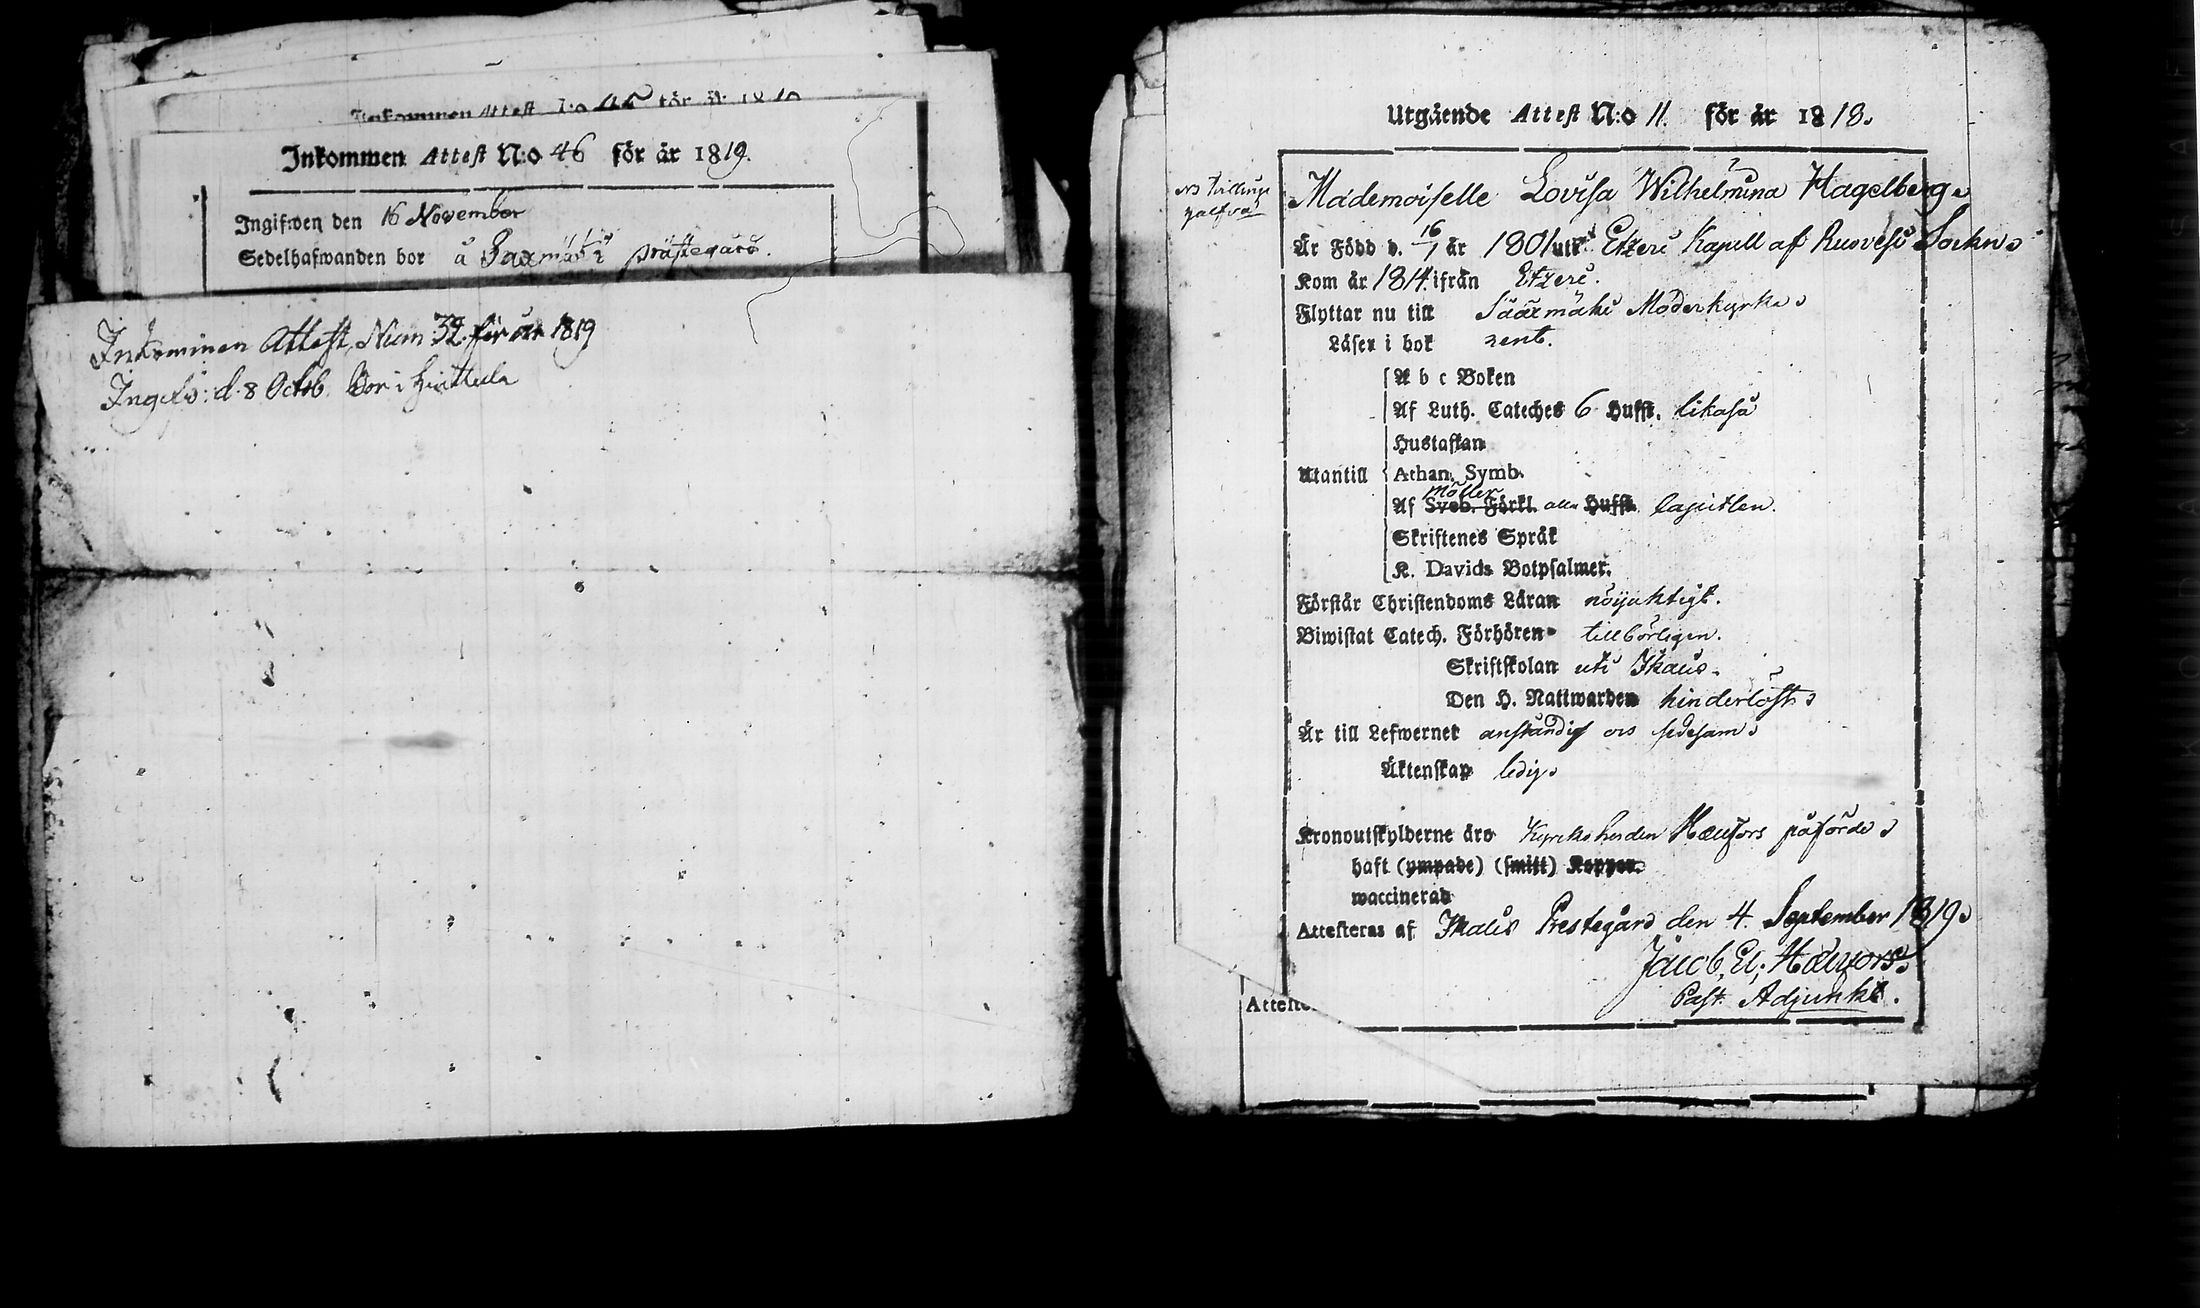 Inkommen Attest N:o 45 för år 1819
Inkommen Attest N:o 46 för år 1819.
Ingifwen den 16 November
Sedelhafwanden bor å Saxmäki prästegård.
Inkommen Attest, Num 32. för år 1819
Ingels: d. 8 Octob. bor i Huittula
Utgående Attest N:o 11. för år 1819.
Mademoiselle Lovisa Wilhelmina Hagelberg
Är Född d. 16/1 år 1801 uti Etzeri Kapell af Ruovesi Sockn
Kom år 1814 ifrån Etzeri.
Flyttar nu till Sääxmäki Moderkyrka
Läser i bok rent.
A b c Boken
Af Luth. Cateches 6 Hufst. likaså
Hustaflan
Utantill Athan. Symb.
Möller
Af Sveb. Förkl. alla Hufst. Capitlen.
Skriftenes Språk
K. Davids Botpsalmer.
Förstår Christendoms Läran nöyaktigt.
Biwistat Catech. Förhören tillbörligen.
Skriftskolan uti Ikalis.
Den H. Nattwarden hinderlöst
Är till Lefwernet anständig och sedesam
Äktenskap ledig
Kronoutskylderne äro Kyrkoherden påförde
haft (ympade) (smitt) Koppor
waccinerad
Attesteras af Ikalis Prestegård den 4. September 1819
Jacob. 
Past. Adjunkt.
Atteste